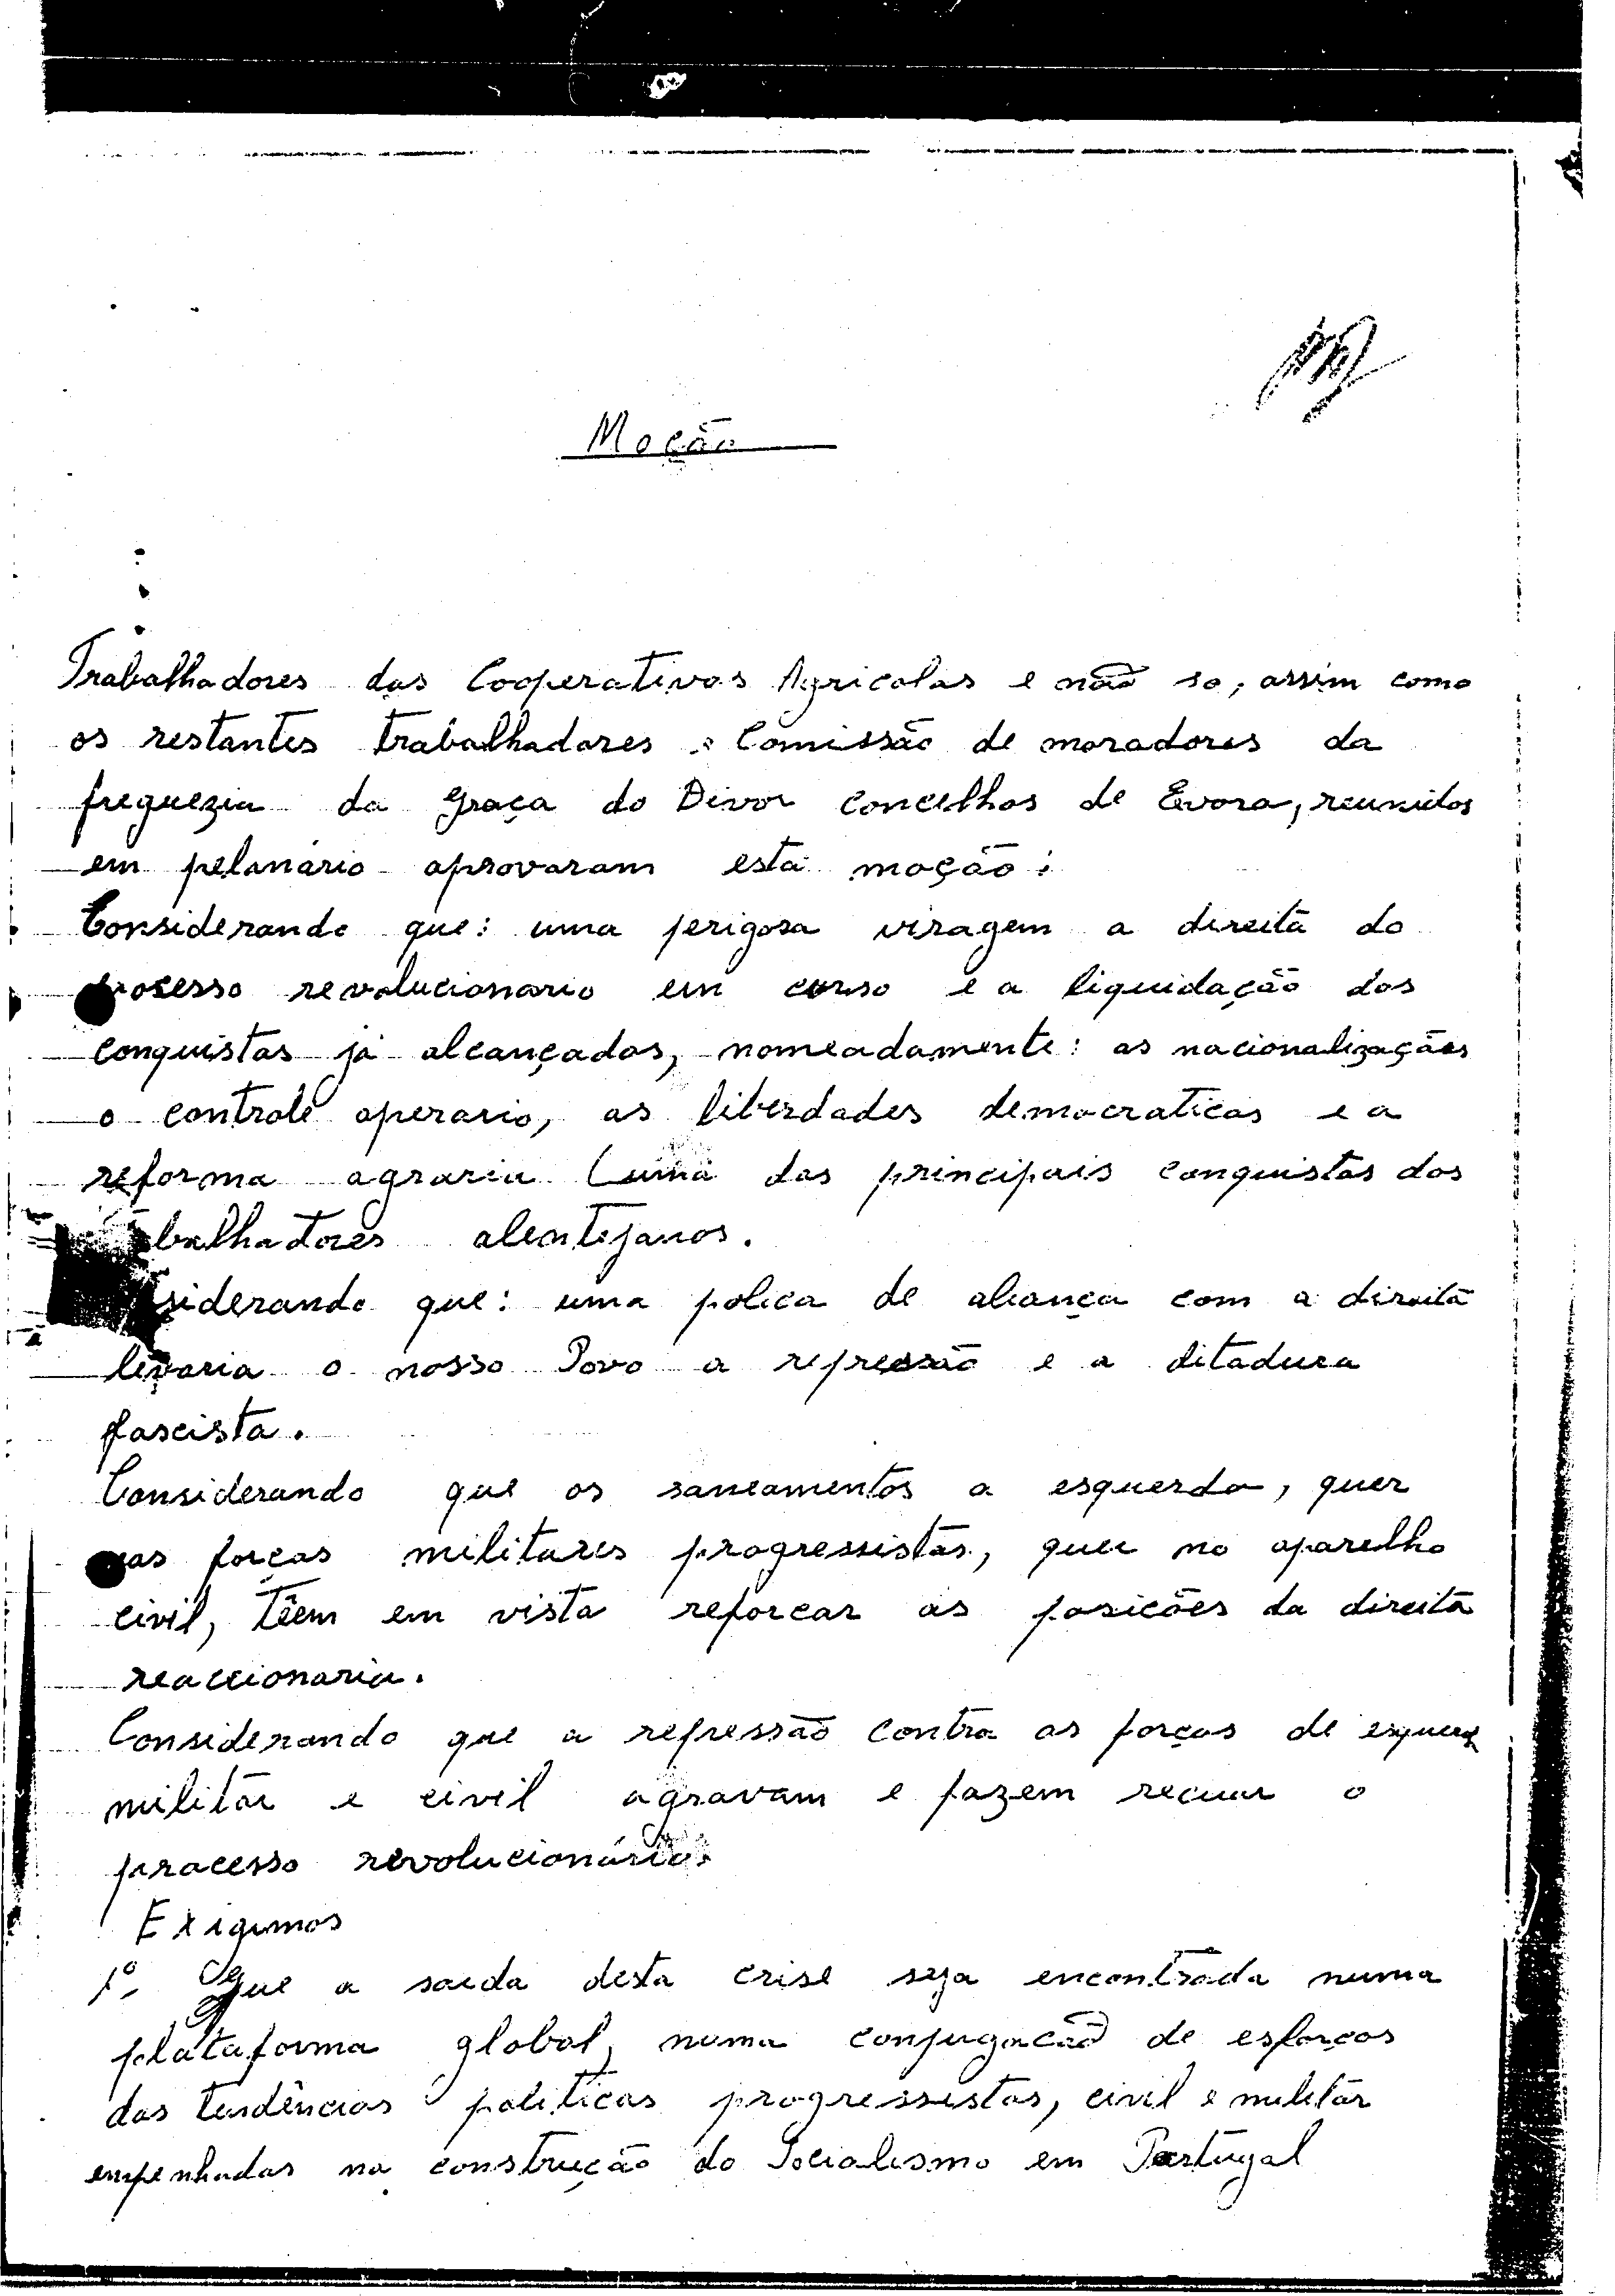 Moção
Trabalhadores das Cooperativas Agricolas e não so, assim como
os restantes trabalhadores e Comissão de moradores da
freguezia da Graça do Divor concelhos de Evora, reunidos
em pelanario aprovaram esta moção:
Considerando que: uma perigosa viragem a direita do
processo revolucionario em curso e a liquidação das
conquistas já alcançadas, nomeadamente: as nacionalizações
o controle operario, as liberdades democraticas e a
reforma agraria (uma das principais conquistas dos
balhadores alentejanos.
siderando que: uma polica de aliança com a direita
levaria o nosso Povo a repressão e a ditadura
fascista.
Considerando que os saneamentos a esquerda, quer
nas forças militares progressistas, quer no aparelho
civil, têem em vista reforcar as posicões da direita
reaccionaria.
Considerando que a repressão contra as forças de esquerd
militar e civil agravam e fazem recuar o
processo revolucionário.
Exigimos
1º- Que a saida desta crise seja encontrada numa
plataforma global, numa conjugacão de esforços
das tendências politicas progressistas, civil e militar
empenhadas na construção do Socialismo em Portugal